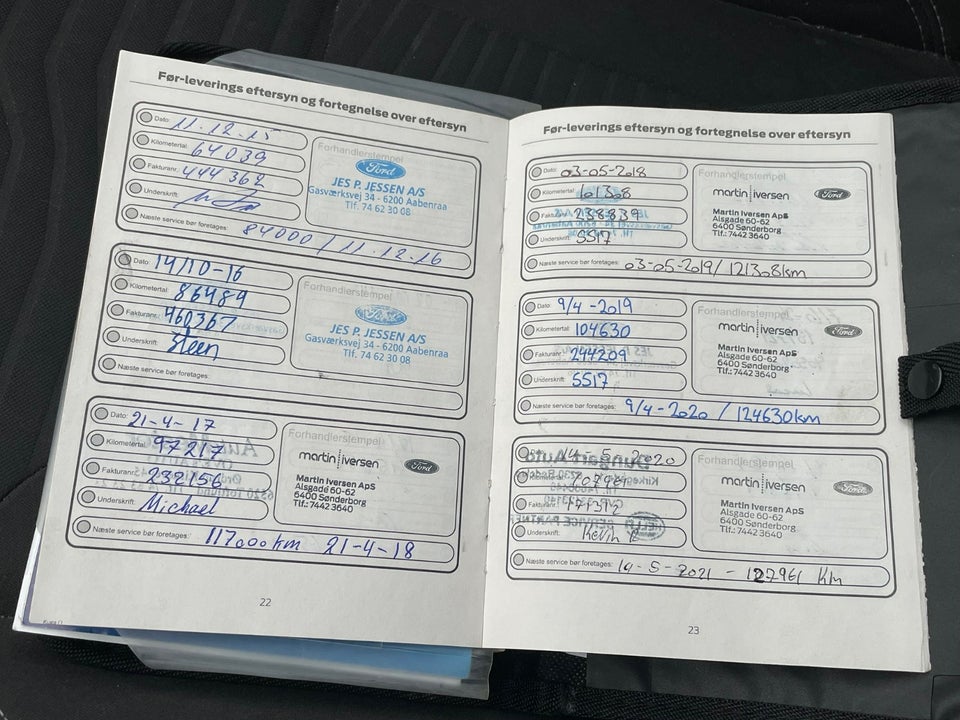 Før-leverings eftersyn og fortegnelse over eftersyn
Dato: 11.12.15
Kilometertal: 64039
Fakturanr.: 444362
Underskrift:
Næste service bør foretages: 84000 / 11.12.16
Forhandlerstempel
Ford
JES P. JESSEN A/S
Gasværksvej 34 - 6200 Aabenraa
Tlf. 74 62 30 08
Dato: 14/10-16
Kilometertal: 86489
Fakturanr.: 460367
Underskrift: Steen
Næste service bør foretages:
Forhandlerstempel
Ford
JES P. JESSEN A/S
Gasværksvej 34 - 6200 Aabenraa
Tlf. 74 62 30 08
Dato: 21-4-17
Kilometertal: 97217
Fakturanr.: 232156
Underskrift: Michael
Næste service bør foretages: 117000km 21-4-18
Forhandlerstempel
martin iversen Ford
Martin Iversen ApS
Alsgade 60-62
6400 Sønderborg
Tlf.: 7442 3640
22
Før-leverings eftersyn og fortegnelse over eftersyn
Dato: 03-05-2018
Kilometertal: 101308
Fakturanr.: 238839
Underskrift: SS17
Næste service bør foretages: 03-05-2019/ 121308km
Forhandlerstempel
martin iversen Ford
Martin Iversen ApS
Alsgade 60-62
6400 Sønderborg
Tlf.: 7442 3640
Dato: 9/4-2019
Kilometertal: 104630
Fakturanr.: 244209
Underskrift: SS17
Næste service bør foretages: 9/4-2020 / 124630km
Forhandlerstempel
martin iversen Ford
Martin Iversen ApS
Alsgade 60-62
6400 Sønderborg
Tlf.: 7442 3640
Dato: 14-5-2020
Underskrift: Kevin
Næste service bør foretages: 14-5-2021 - 127961 km
Forhandlerstempel
martin iversen Ford
Martin Iversen ApS
Alsgade 60-62
6400 Sønderborg
Tlf.: 7442 3640
23